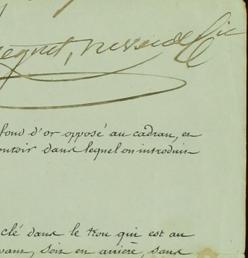 fond d'or opposé au cadran, en
ontoir dans lequel on introduis
clé dans le trou qui est au
vant, soit en arrière, sans